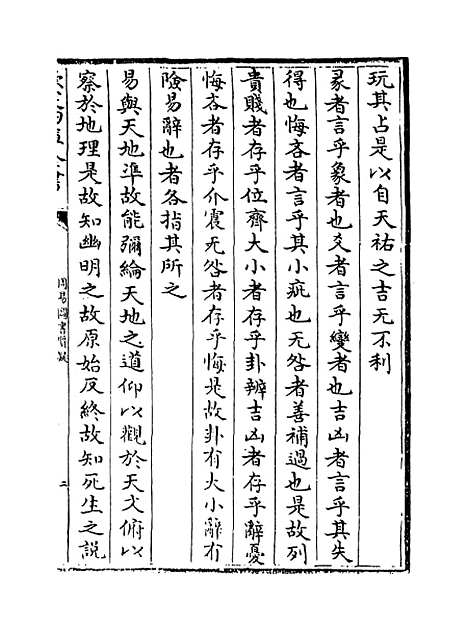 玩其占是以自天祐之吉无不利
彖者言乎象者也爻者言乎變者也吉凶者言乎其失
得也悔吝者言乎其小疵也无咎者善補過也是故列
貴賤者存乎位齊大小者存乎卦辨吉凶者存乎辭憂
悔吝者存乎介震无咎者存乎悔是故卦有大小辭有
險易辭也者各指其所之
易與天地準故能彌綸天地之道仰以觀於天文俯以
察於地理是故知幽明之故原始反終故知死生之說
二